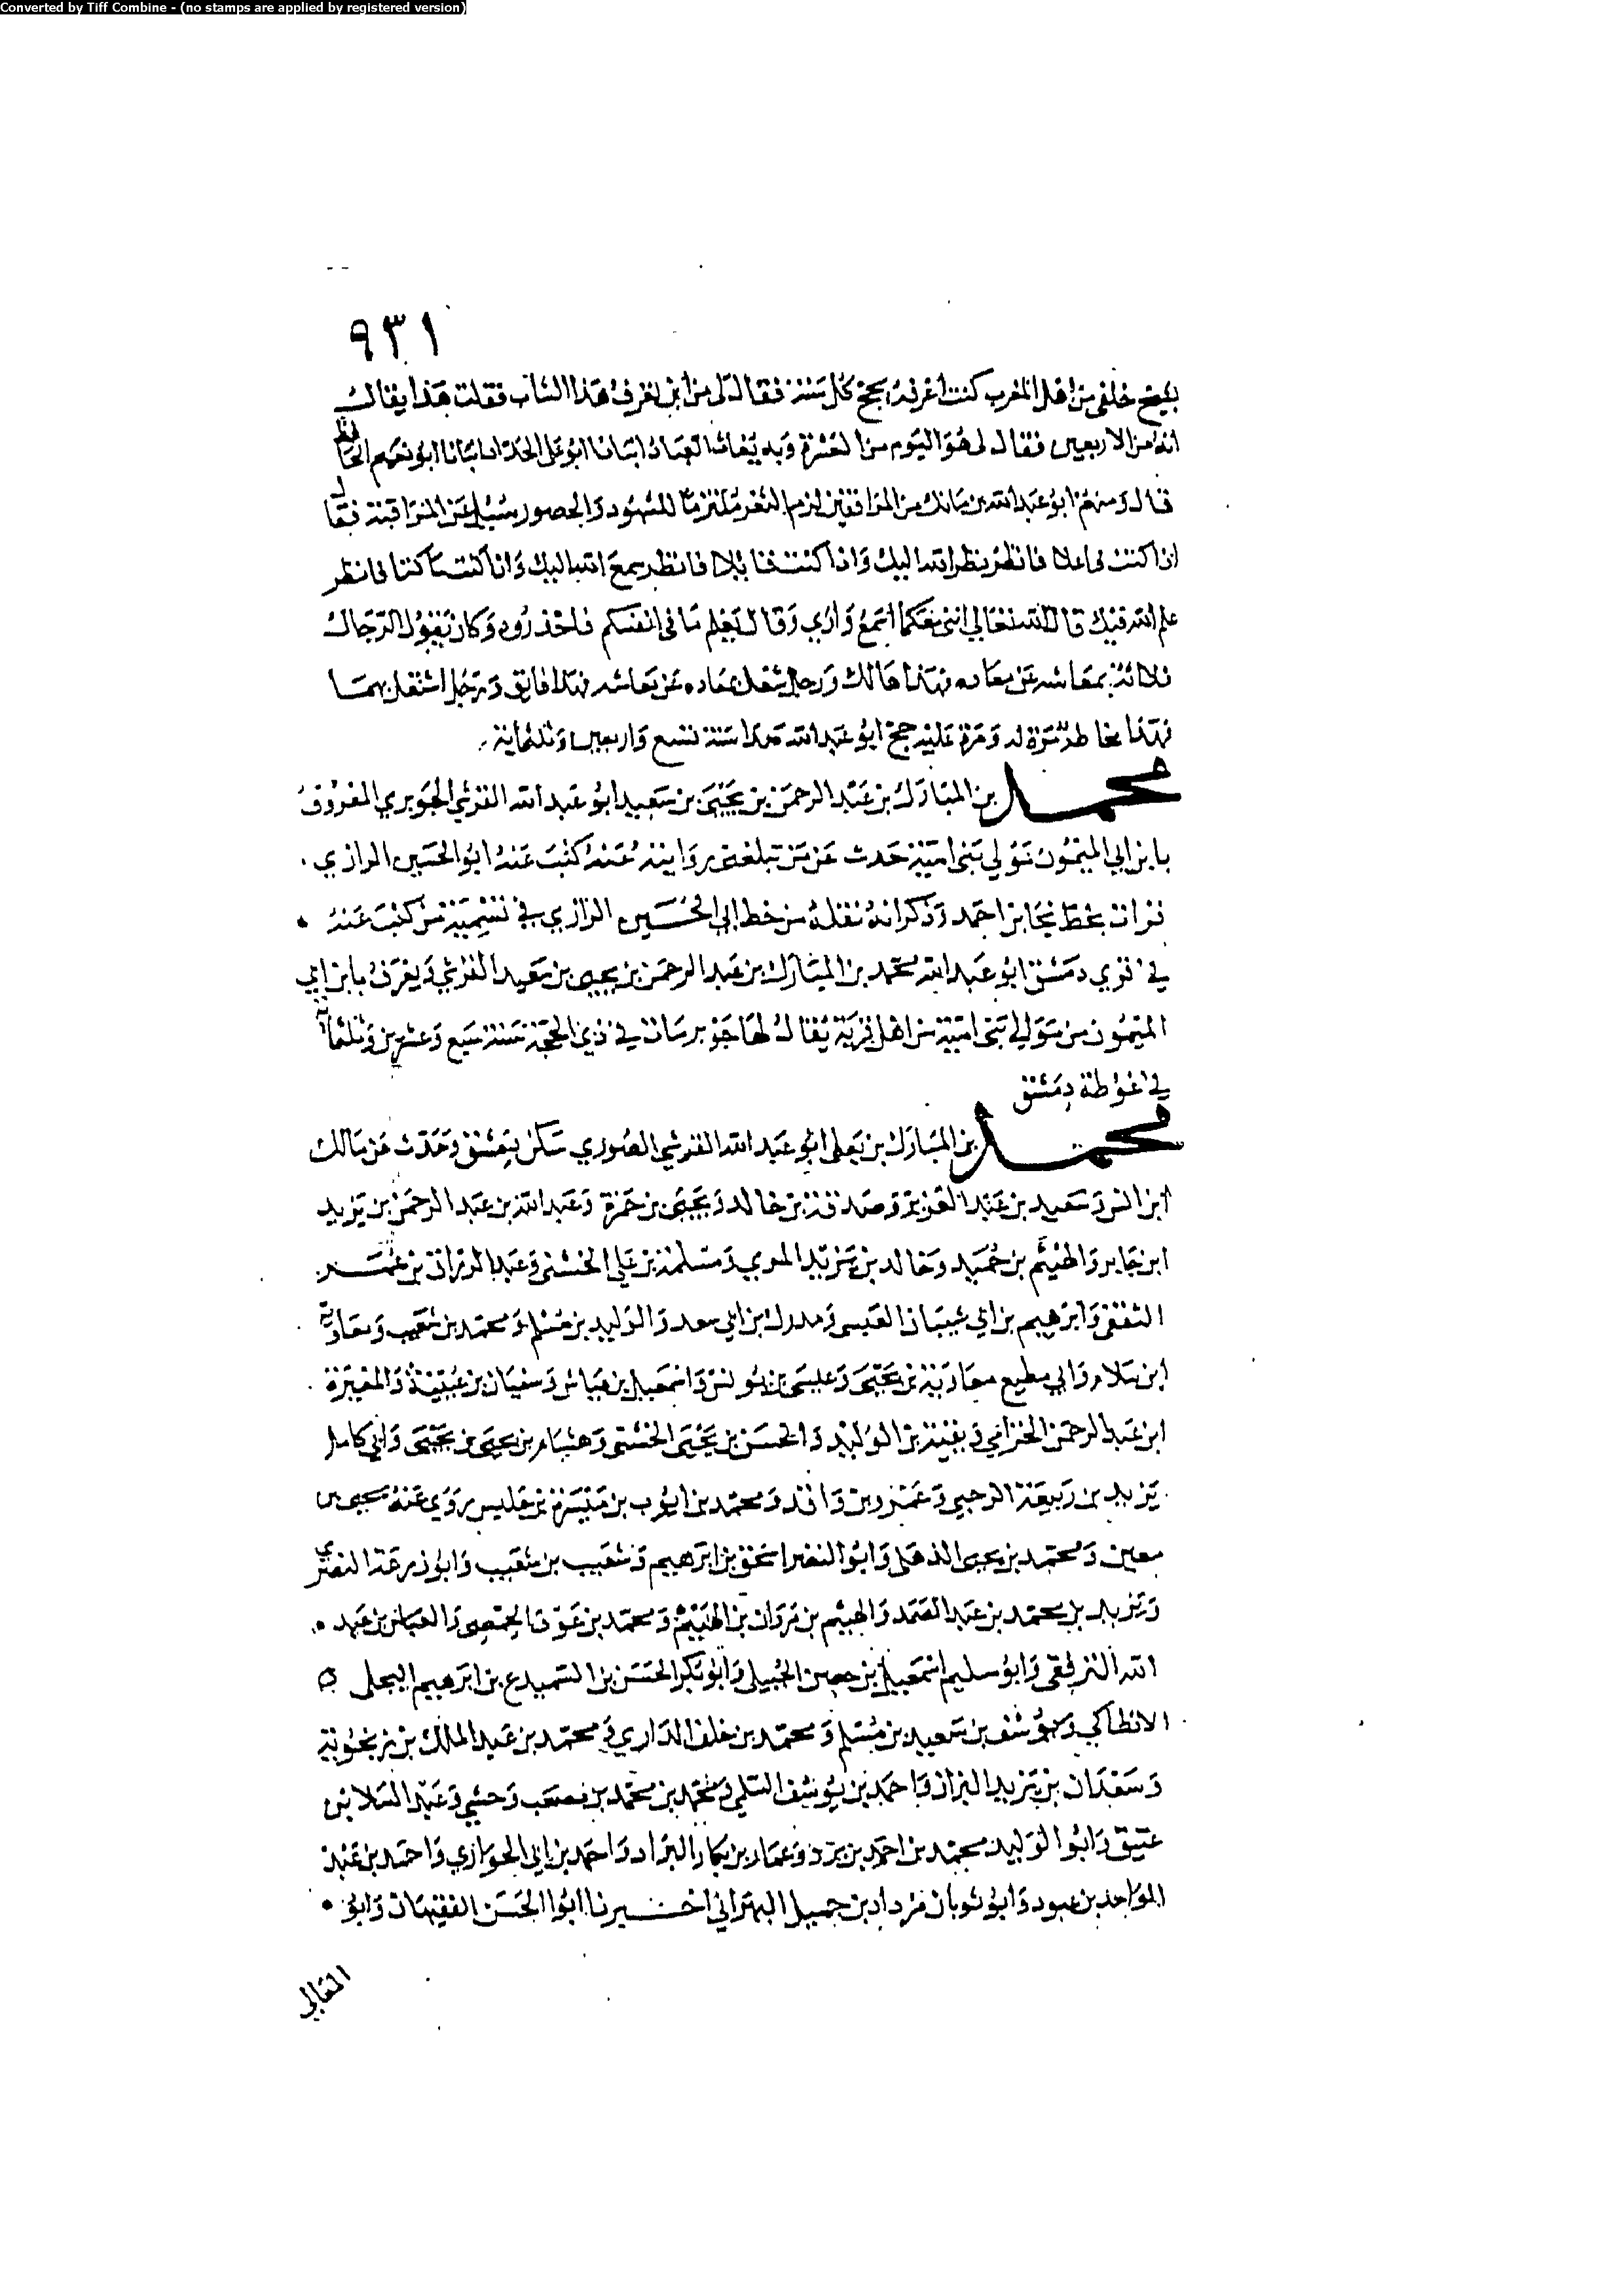 Converted by Tiff Combine - (no stamps are applied by registered version)
٩٣١
يصيح خلفي من اهل المغرب كنت اعرفه يحج كل سنة فقال لي من اين تعرف هذا الشاب فقلت هذا يقال
انه من الاربعين فقال لي هو اليوم من العشرة وبه يغاث العباد انبانا ابو علي الحداد انبانا ابو نعيم الحافظ
قال ومنهم ابو عبد الله بن مانك من المرافقين لزم الثغر ملتزما للشهود والحضور سئل عن المراقبة فقال
اذا كنت فاعلا فانظر نظر الله اليك واذا كنت قائلا فانظر سمع الله اليك واذا كنت ساكتا فانظر
علم الله فيك قال الله تعالى انني معكما اسمع واري وقال يعلم ما في انفسكم فاحذروه وكان يقول الرجال
ثلاثة بمعاشه عن معاده فهذا هالك ورجل شغل بمعاده عن معاشه فهذا فايق ورجل اشتغل بهما
فهذا مخاطر مرة له ومرة عليه حج ابو عبد الله هذا سنة تسع واربعين وثلثماية
محمد بن المبارك بن عبد الرحمن بن يحيى بن سعيد ابو عبد الله القرشي الجوبري المعروف
بابن ابي الميمون مولي بني امية حدث عن من تبلغني روايته عنه كتب عنه ابو الحسين الرازي
قرات بخط نجا بن احمد وذكر انه نقله من خط ابي الحسين الرازي في تسمية من كتب عنه
في قري دمشق ابو عبد الله محمد بن المبارك بن عبد الرحمن بن يحيى بن سعيد القرشي ويعرف بابن ابي
الميمون من موالي بني امية من اهل قرية يقال لها جوبر مات في ذي الحجة سنة سبع وعشرين وثلثماية
في غوطة دمشق
محمد بن المبارك بن يعلى ابو عبد الله القرشي الصوري سكن دمشق وحدث عن مالك
ابن انس وسعيد بن عبد العزيز وصدقة بن خالد ويحيى بن حمزة وعبد الله بن عبد الرحمن بن يزيد
ابن جابر والهيثم بن حميد وخالد بن يزيد المري ومسلمة بن علي الخشني وعبد الرزاق بن عمر
الثقفي وابرهيم بن ابي شيبان العبسي ومدرك بن ابي سعد والوليد بن مسلم ومحمد بن شعيب ومعاوية
ابن سلام وابي مطيع معاوية بن يحيى وعيسى بن يونس واسمعيل بن عياش وسفيان بن عيينة والمغيرة
ابن عبد الرحمن الحزامي وبقية بن الوليد والحسن بن يحيى الخشني وهشام بن يحيى بن يحيى وابي كامل
يزيد بن ربيعة الرحبي وعمرو بن واقد ومحمد بن ايوب بن ميسرة بن حلبس روى عنه يحيى بن
معين ومحمد بن يحيى الذهلي وابو النضر اسحق بن ابرهيم وشعيب بن شعيب وابو زرعة النصري
ويزيد بن محمد بن عبد الصمد والهيثم بن مروان بن الهيثم ومحمد بن عوف الحمصي والعباس بن عبد
الله الترقفي وابو سليم اسمعيل بن حصن الجبيلي وابو بكر الحسن بن السميدع بن ابرهيم البجلي
الانطاكي ويوسف بن سعيد بن مسلم ومحمد بن خلف الداري ومحمد بن عبد الملك بن زنجوية
وسعدان بن يزيد البزاز واحمد بن يوسف السلمي ومحمد بن محمد بن مصعب وحشي وعبد السلام بن
عتيق وابو الوليد محمد بن احمد بن برد وعمار بن بكار البراد واحمد بن ابي الحواري واحمد بن عبد
الواحد بن عبود وابو ثوبان مزداد بن جميل البهراني اخبرنا ابوا الحسن الفقيهان وابو
المعالي